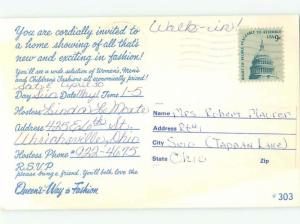 You are cordially invited to
a home showing of all that's
new and exciting in fashion!
You'll see a wide selection of Women's, Men's
and Children's Fashions all economically priced!
Date April 30
Day Sun Time 1-5
Hostess Linda
Address 435 E 6th St.
Uhrichsville, Ohio
Hostess Phone # 922-4675
R.S.V.P.
please bring a friend. You'll both love the
Queen's-Way to Fashion
Walk-in!
RIGHT OF PEOPLE PEACEABLY TO ASSEMBLE
USA 9c
Name
Mrs Robert Maurer
Address
Rt #1
City
Scio (Tappan Lake)
State
Ohio
Zip
*303